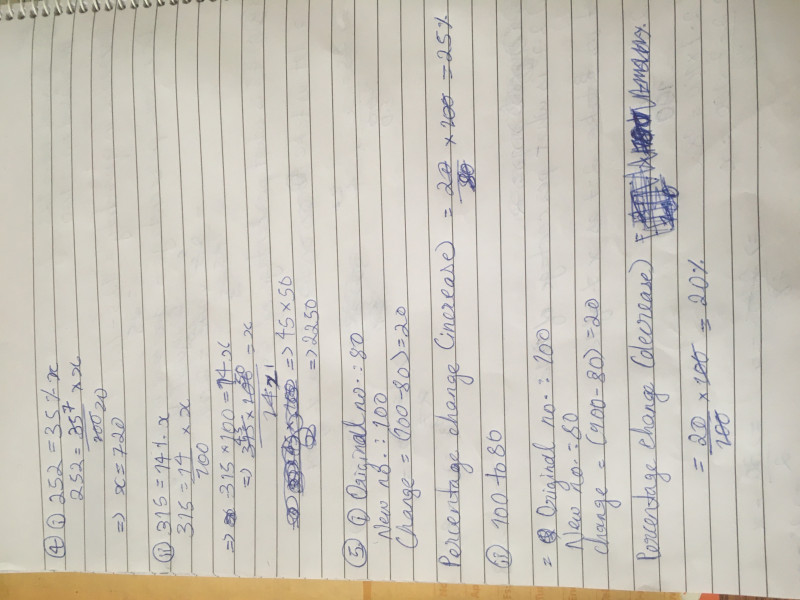 ④ ⓘ 252 = 35% x
252 = 35/100 × x
7
20
⇒ x = 720
ⓘⓘ 315 = 14% x
315 = 14/100 × x
⇒ 315 × 100 = 14 x
⇒ 315 × 100/14 = x
45
50
⇒ 45 × 50
⇒ 2250
⑤ ⓘ Original no.: 80
New no.: 100
Change = (100-80) = 20
Percentage change (increase) = 20/80 × 100 = 25%
ⓘⓘ 100 to 80
= Original no.: 100
New no.: 80
change = (100-80) = 20
Percentage change (decrease) =
= 20/100 × 100 = 20%